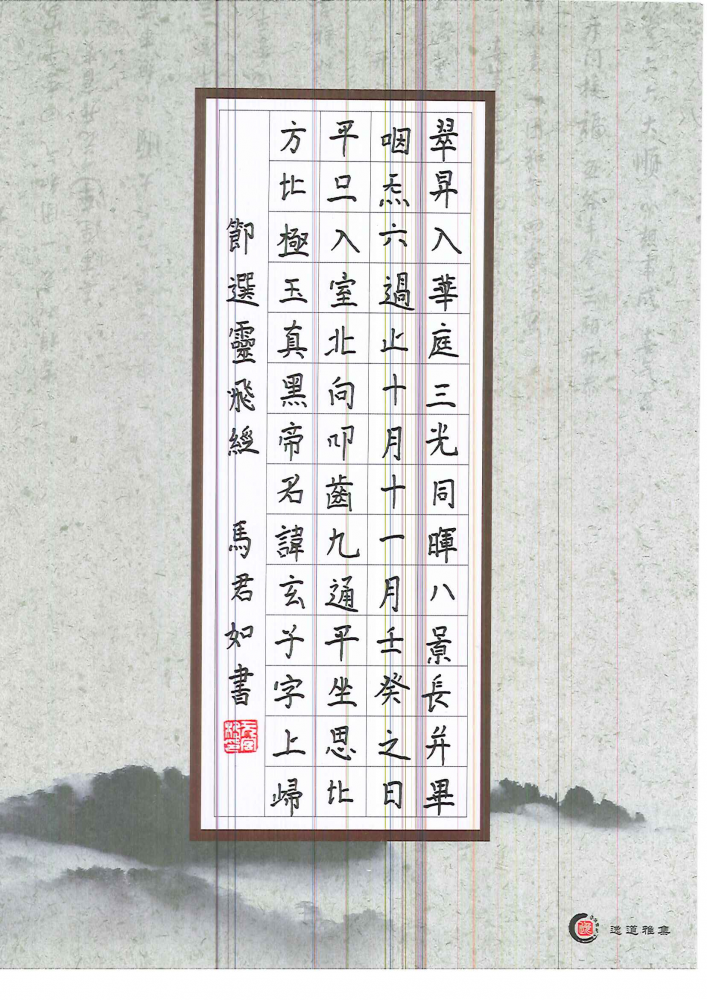 翠昇入華庭三光同暉八景長并畢
咽炁六過止十月十一月壬癸之日
平旦入室北向叩齒九通平坐思北
方北極玉真黑帝君諱玄子字上歸
節選靈飛經 馬君如書
道雅集